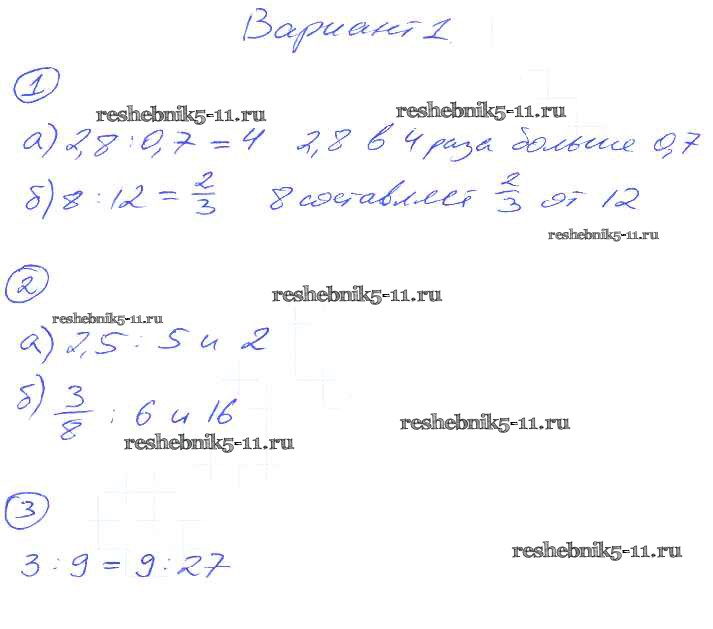 Вариант 1
1
reshebnik5-11.ru reshebnik5-11.ru
а) 2,8 : 0,7 = 4 2,8 в 4 раза больше 0,7
б) 8 : 12 = 2/3 8 составляет 2/3 от 12
reshebnik5-11.ru
2
reshebnik5-11.ru
reshebnik5-11.ru
а) 2,5 : 5 и 2
б) 3/8 : 6 и 16
reshebnik5-11.ru
reshebnik5-11.ru
3
3 : 9 = 9 : 27
reshebnik5-11.ru